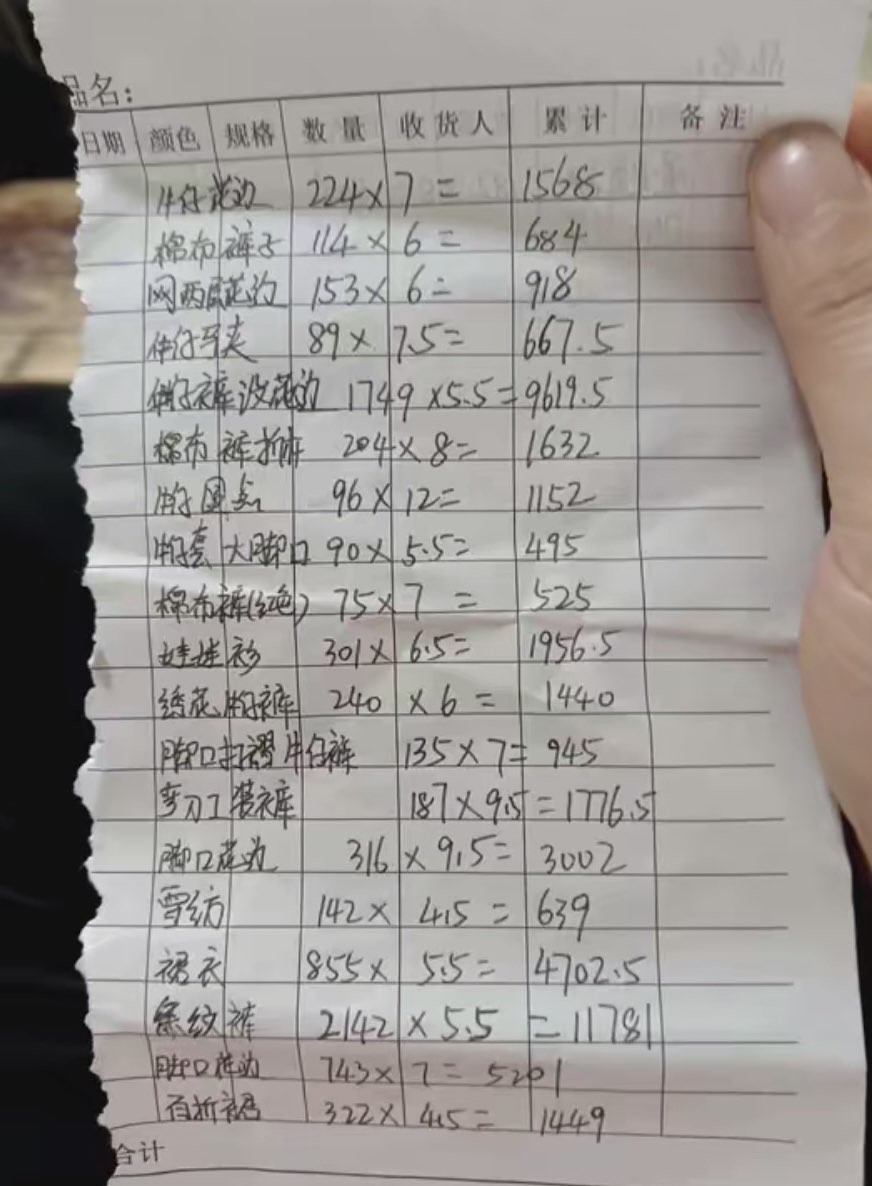 品名:
日期 颜色 规格 数量 收货人 累计 备注
牛仔花边 224×7= 1568
棉布裤子 114×6= 684
153×6= 918
89×7.5= 667.5
牛仔裤没花边 1749×5.5=9619.5
棉布裤 204×8= 1632
牛仔 96×12= 1152
牛仔套大脚口 90×5.5= 495
棉布裤(红色) 75×7= 525
娃娃衫 301×6.5= 1956.5
绣花牛仔裤 240×6= 1440
脚口打褶牛仔裤 135×7= 945
弯刀工装裤 187×9.5=1776.5
脚口花边 316×9.5= 3002
雪纺 142×4.5= 639
裙衣 855×5.5= 4702.5
条纹裤 2142×5.5 =11781
脚口花边 743×7= 5201
百折裙 322×4.5= 1449
合计